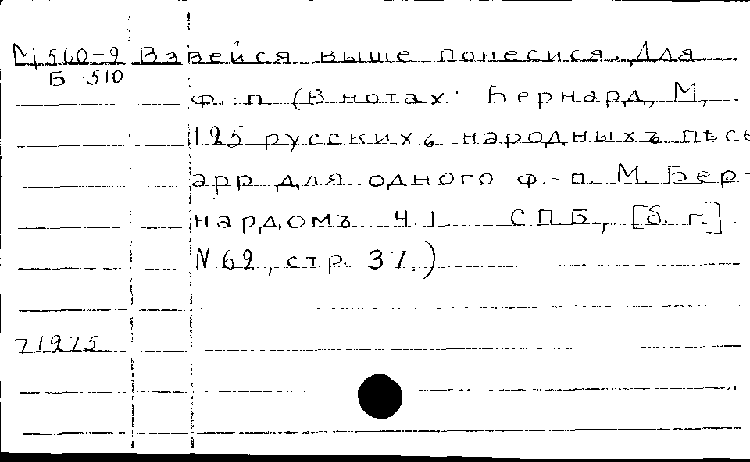 М 560-9 Взвейся выше понесися. Для
Б 510
ф.-п. (В нотах: Бернард, М.,
125 русскихъ народныхъ пѣсе
арр для одного ф.-п. М. Бер-
нардомъ Ч.1 СПБ, [б. г.]
N 62, стр. 37.)
71975